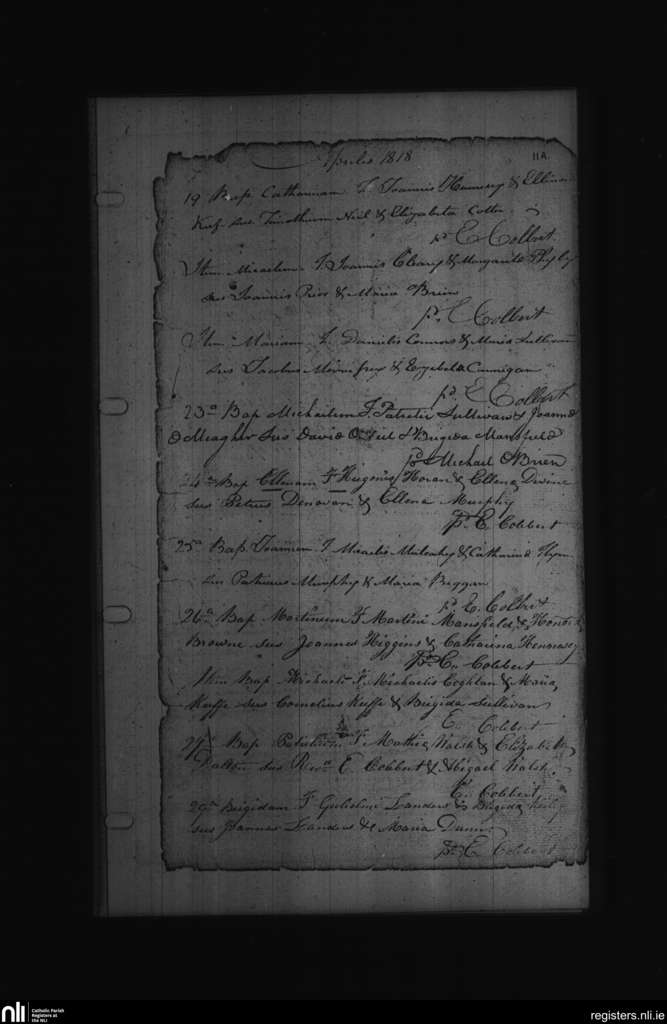 Aprilis 1818
11A.
19 Bap. Catharinam F. Joannis Hennessy & Ellinor
Kuf. sus Timotheum Neil & Elizabeta Cotter
pr E Colbert
Item Michaelem F. Joannis Cleary & Margarita
sus Joannis Prior & Maria Brien
Pr. E Colbert
Item Mariam F. Danielis Connors & Maria Sullivan
sus Jacobus & Elizabeta Cunnigan
pr. E Colbert
23a Bap Michaelem F. Patritii Sullivan & Joanna
O Meagher Sus David O Neil & Brigida Mansfield
Pr Michael OBrien
24th Bap Ellenam F Hugonis Horan & Ellena Divine
sus Petrus Donovan & Ellena Murphy
Pr. E Colbert
25a Bap. Joannem F Micaelis Mulcahy & Catharina Flynn
sus Patricius Murphy & Maria Briggan
Pr E. Colbert
26a Bap Martinum F Martini Mansfield & Honora
Browne sus Joannes Higgins & Catharina Hennessy
Pr. E. Colbert
Item Bap. Michaeli F. Michaelis Coghlan & Maria
Keeffe sus Cornelius Keeffe & Brigida Sullivan
E. Colbert
29a Bap Patritium F. Mathie Walsh & Elizabeth
Dalton sus Revd. E Colbert & Abigael Walsh.
E. Colbert
29th Brigidam F Gulielmi Landers & Brigida Kiely
sus Joannes Landers & Maria Dunn.
pr. E Colbert
nli
Catholic Parish
Registers at
the NLI
registers.nli.ie